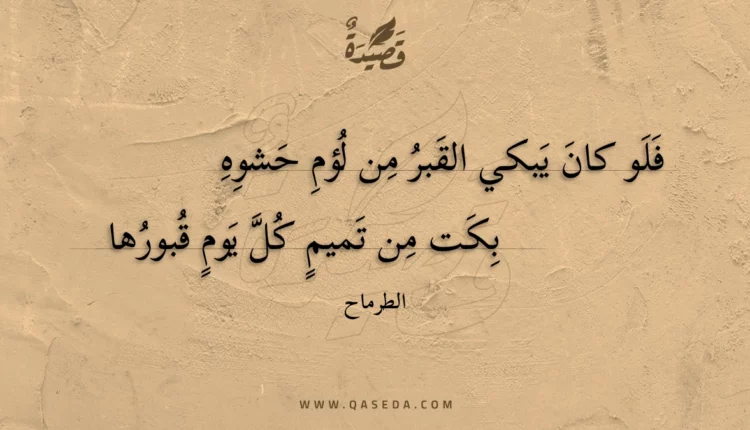 قَصِيْدَةٌ
فَلَو كانَ يَبكي القَبرُ مِن لُؤمِ حَشوِهِ
بِكَت مِن تَميمٍ كُلَّ يَومٍ قُبورُها
الطرماح
WWW.QASEDA.COM